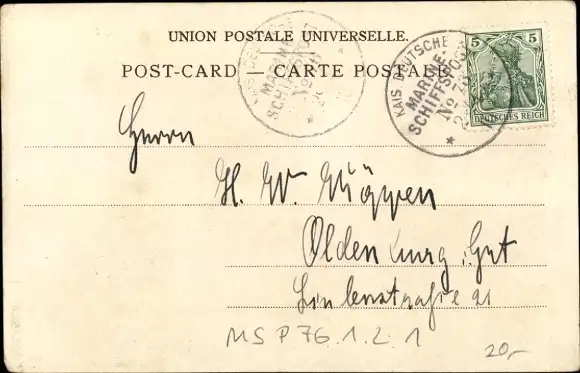 UNION POSTALE UNIVERSELLE.
POST-CARD — CARTE POSTALE
KAIS. DEUTSCHE
MARINE-
SCHIFFSPOST
No 76
5 5
DEUTSCHES REICH
MARINE-
SCHIFFSPOST
No
Herrn
H. W.
Oldenburg, Grt
Lindenstraße 21
MSP 76.1.2.1
20,-